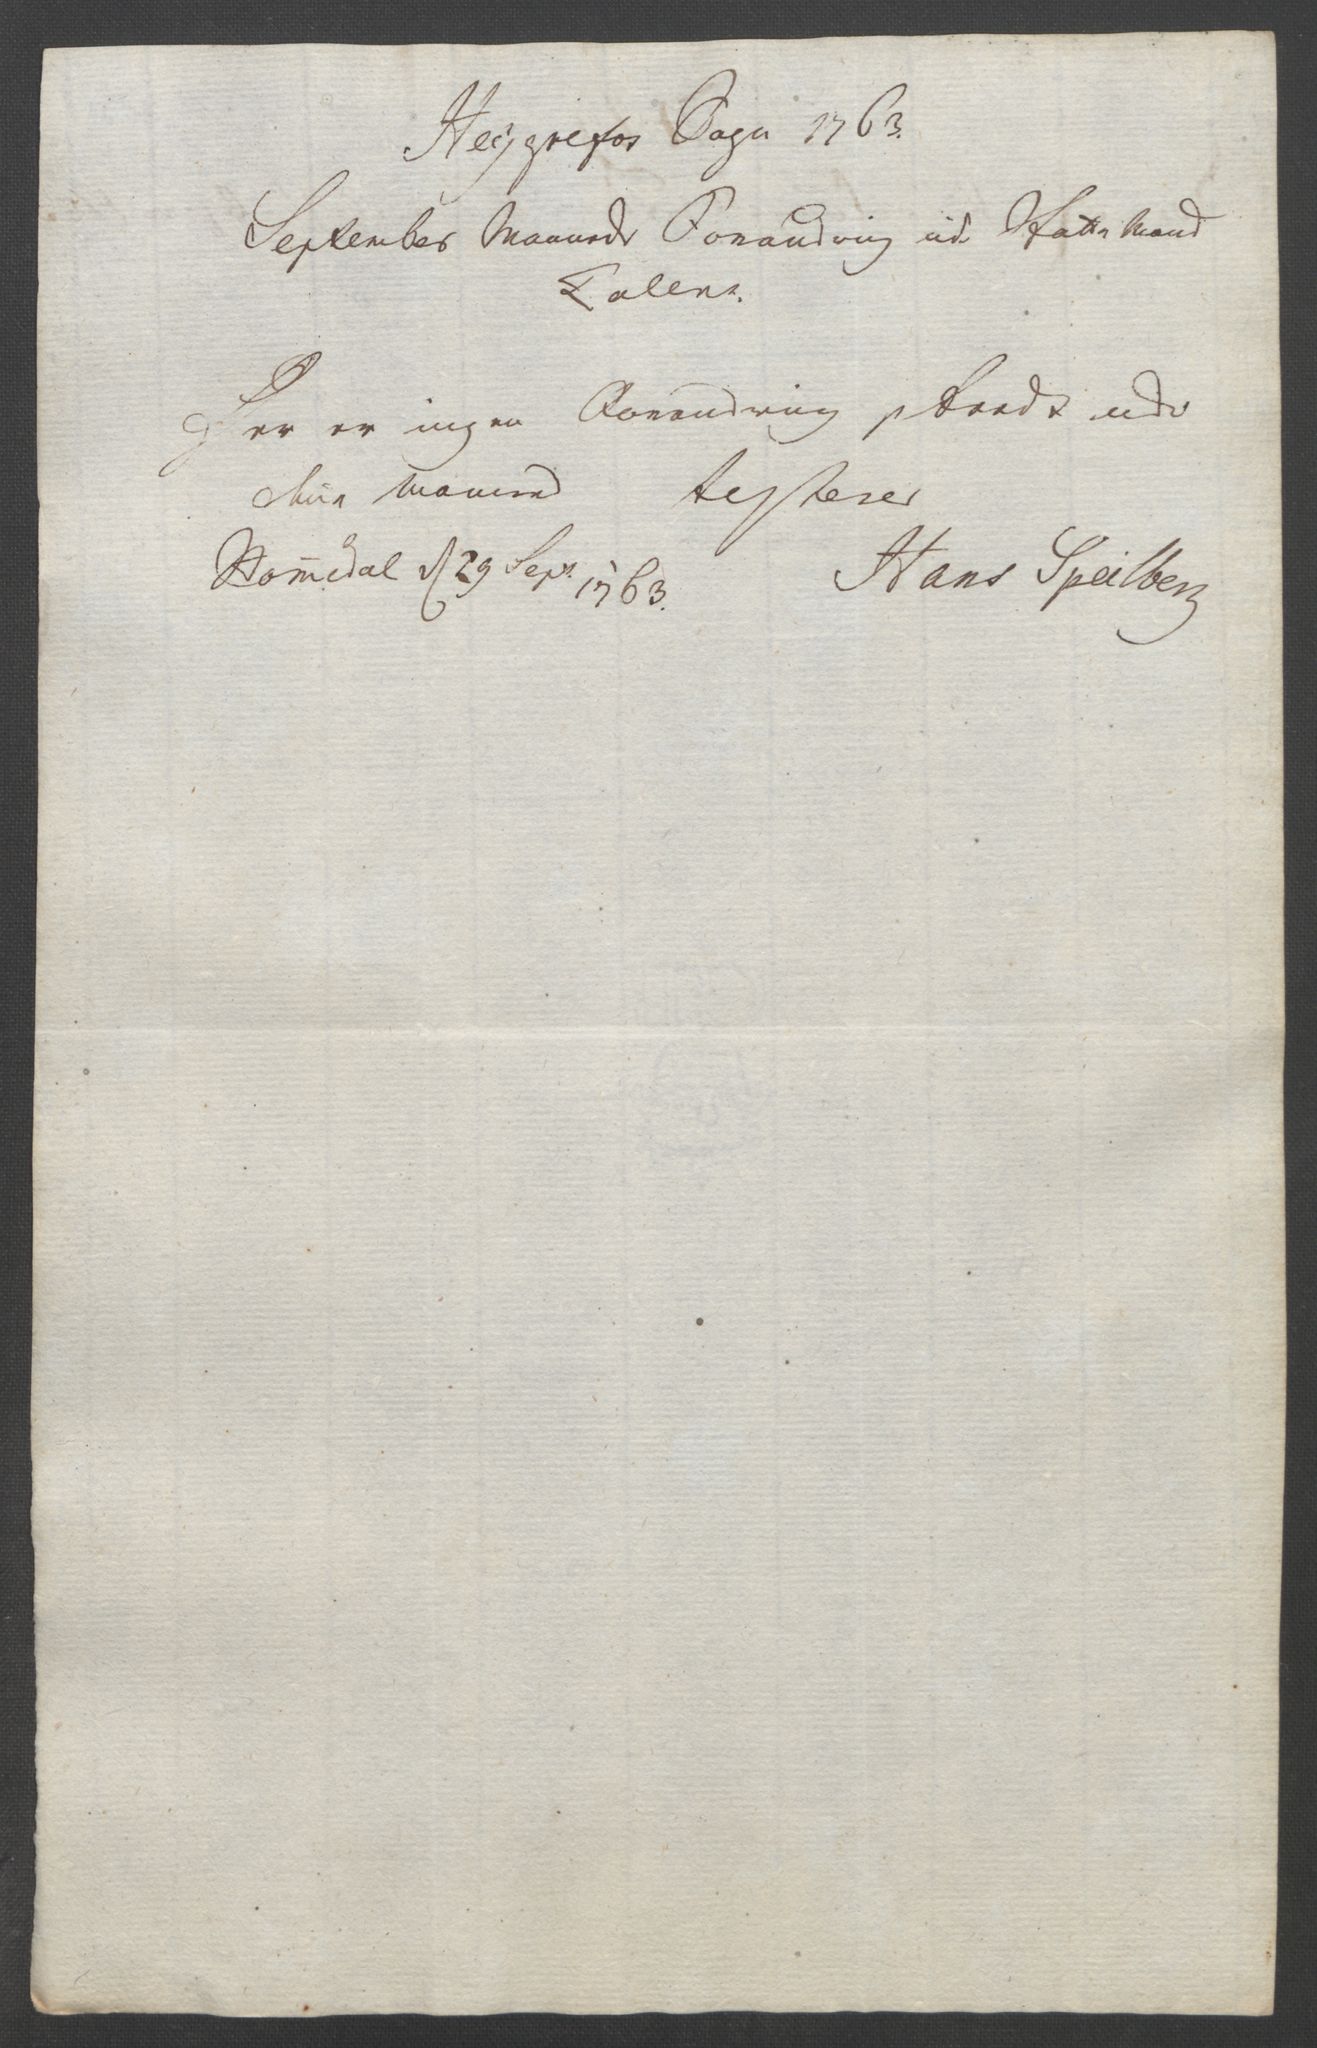 Heygrefos Sogn 1763.
September Maaneds Forandring udi Skatte Mand
Talent.
Her er ingen Forandring skeed udi
denne Maaned testerer
Homedal d 29 Sept. 1763.
Hans Speilberg